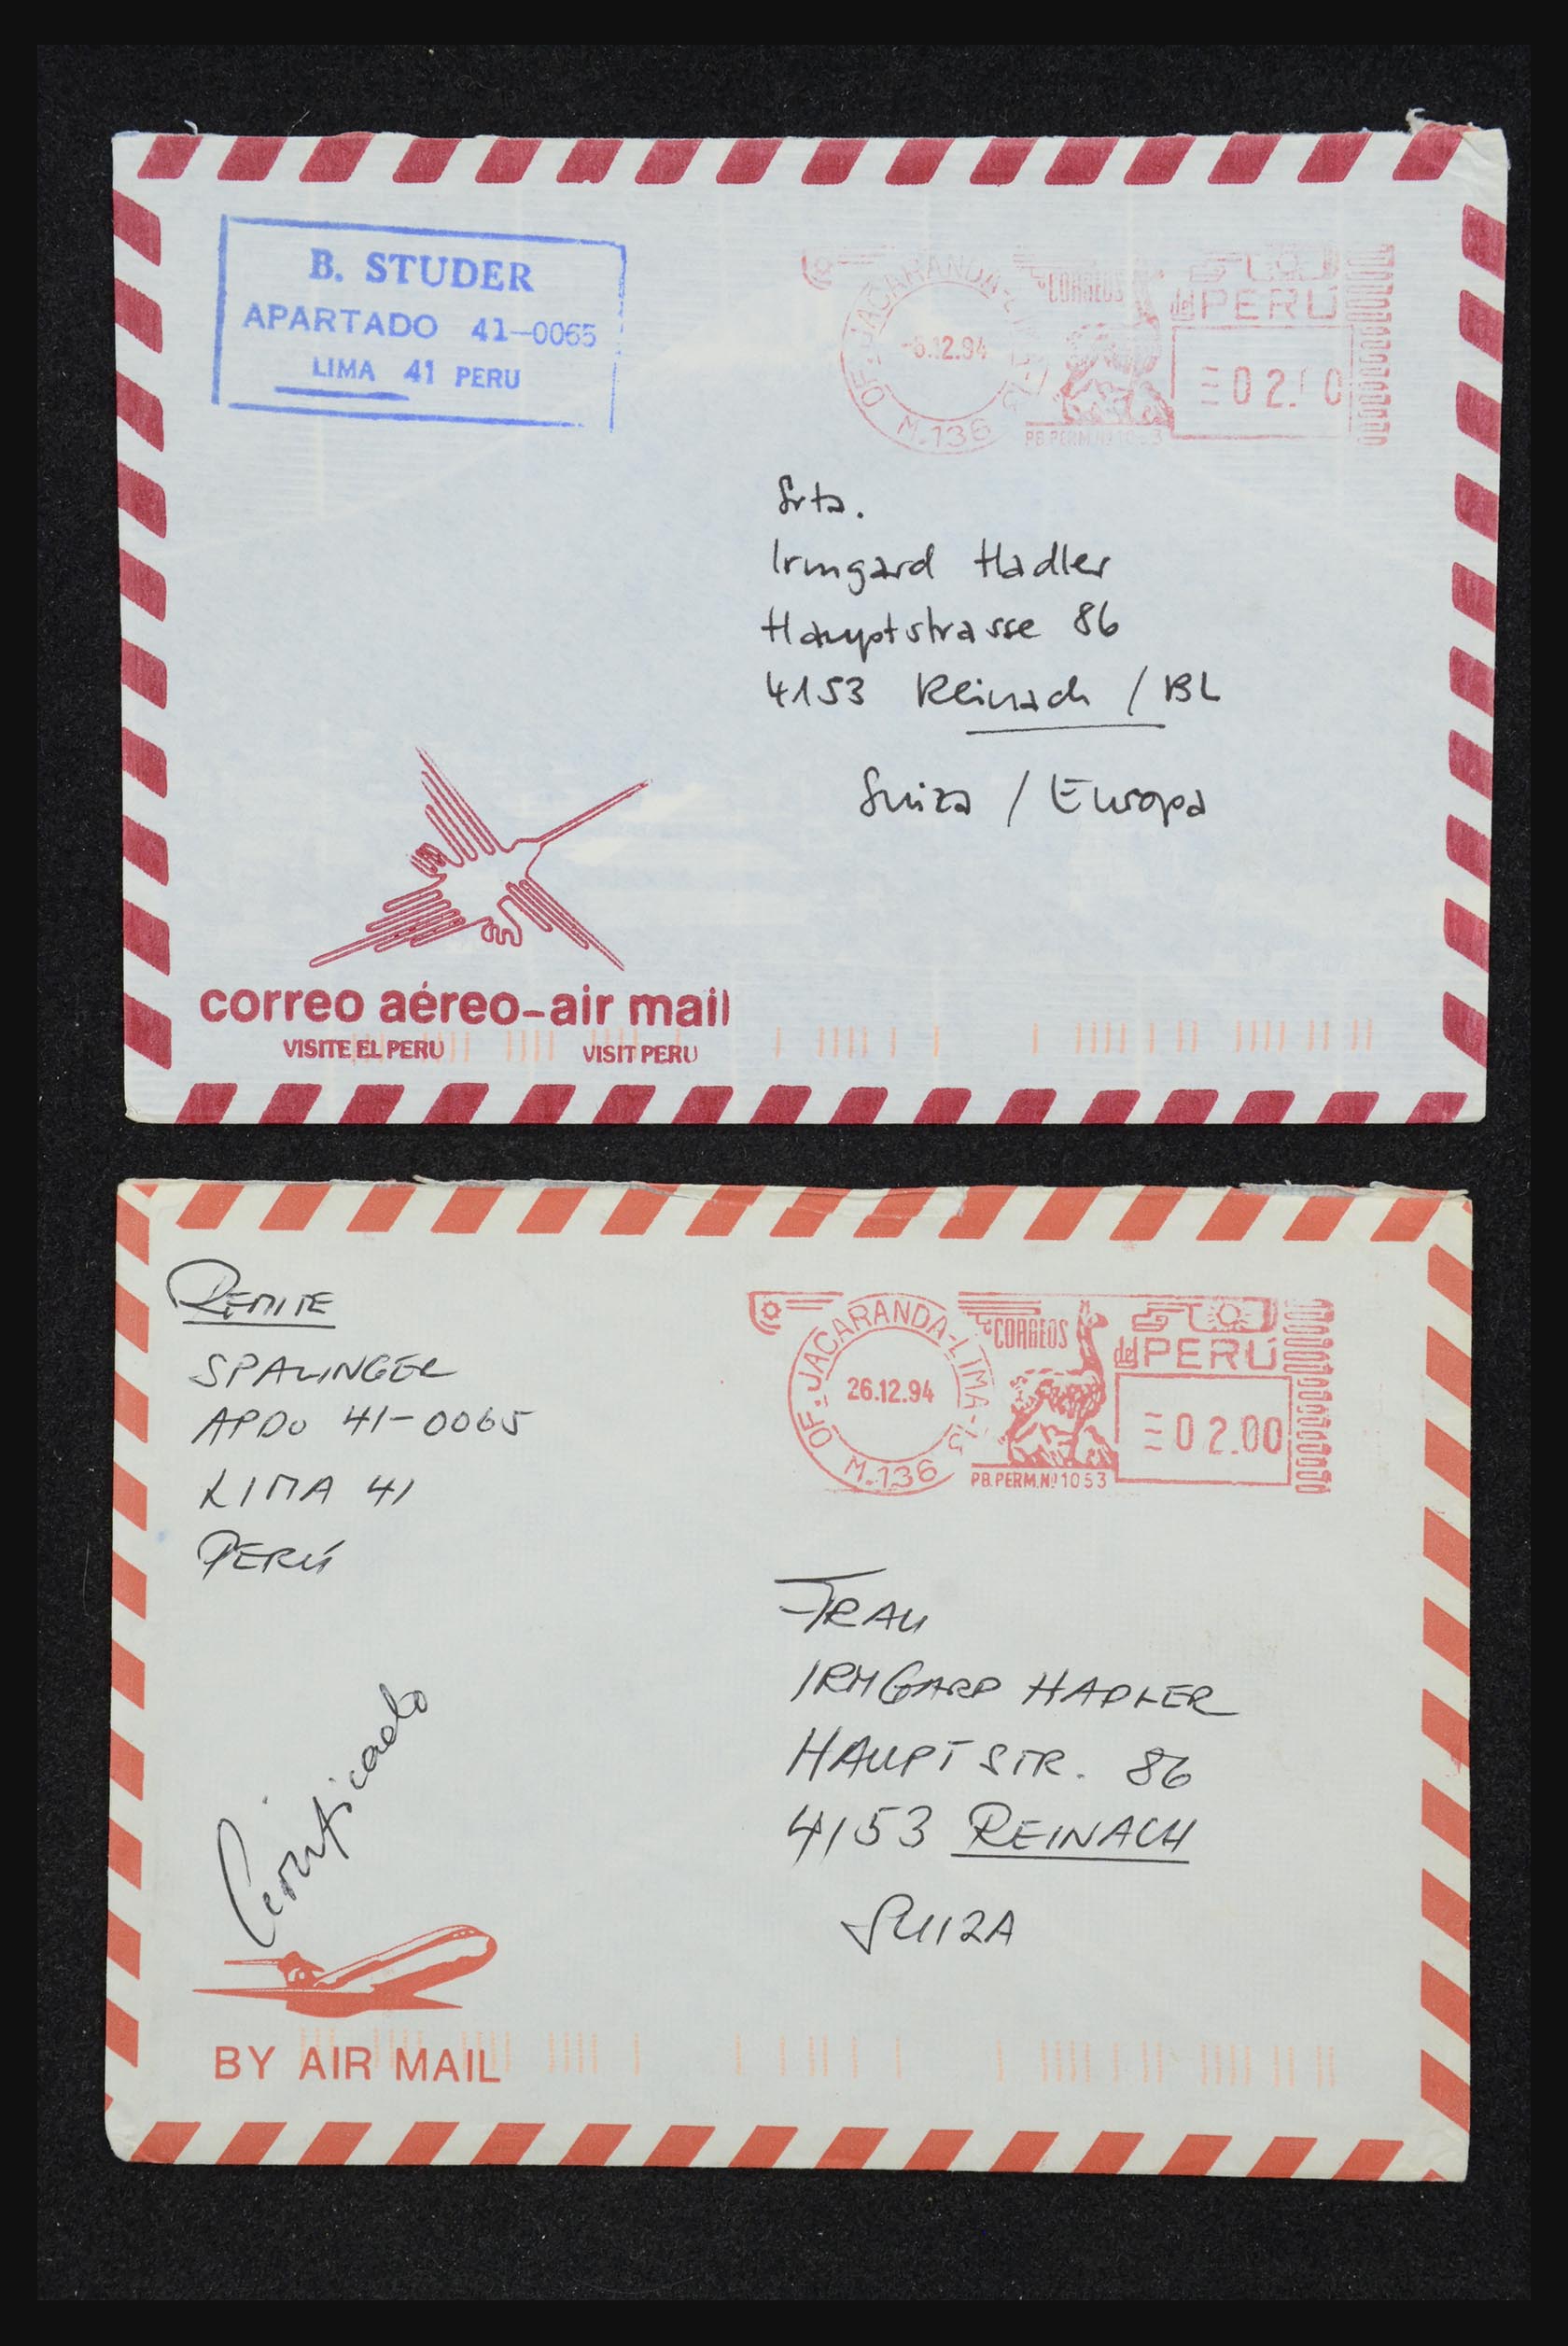 B. STUDER
APARTADO 41-0065
LIMA 41 PERU
OF. JACARANDA-LIMA-
-6.12.94
M.136
CORREOS
del PERÚ
PB.PERM.Nº1053
Srta.
Irmgard Hadler
Hauptstrasse 86
4153 Reinach / BL
Suiza / Europa
correo aéreo-air mail
VISITE EL PERU VISIT PERU
REMITE
SPALINGER
APDO 41-0065
LIMA 41
PERÚ
OF. JACARANDA-LIMA-
26.12.94
M.136
CORREOS
del PERÚ
02.00
PB.PERM.Nº1053
FRAU
IRMGARD HADLER
HAUPTSTR. 86
4153 REINACH
SUIZA
Certificado
BY AIR MAIL